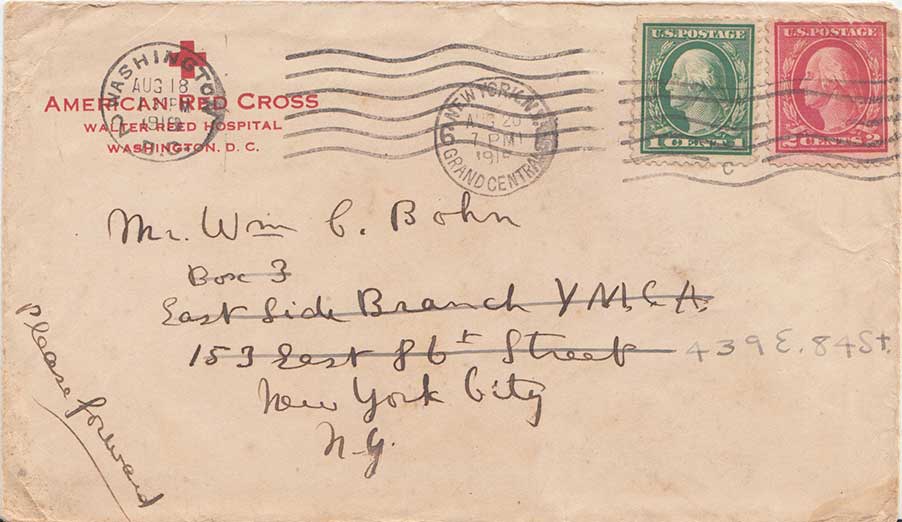 WASHINGTON
AUG 18
D.C.
AMERICAN RED CROSS
WALTER REED HOSPITAL
WASHINGTON, D. C.
NEW YORK, N.Y.
AUG
7 PM
GRAND CENTRAL
U.S. POSTAGE
1 CENT 1
U.S. POSTAGE
2 CENTS 2
C
Mr. Wm C. Bohn
Box 3
East Side Branch Y.M.C.A.
153 East 86t Street 439 E. 84 St.
New York City
N.Y.
Please forward